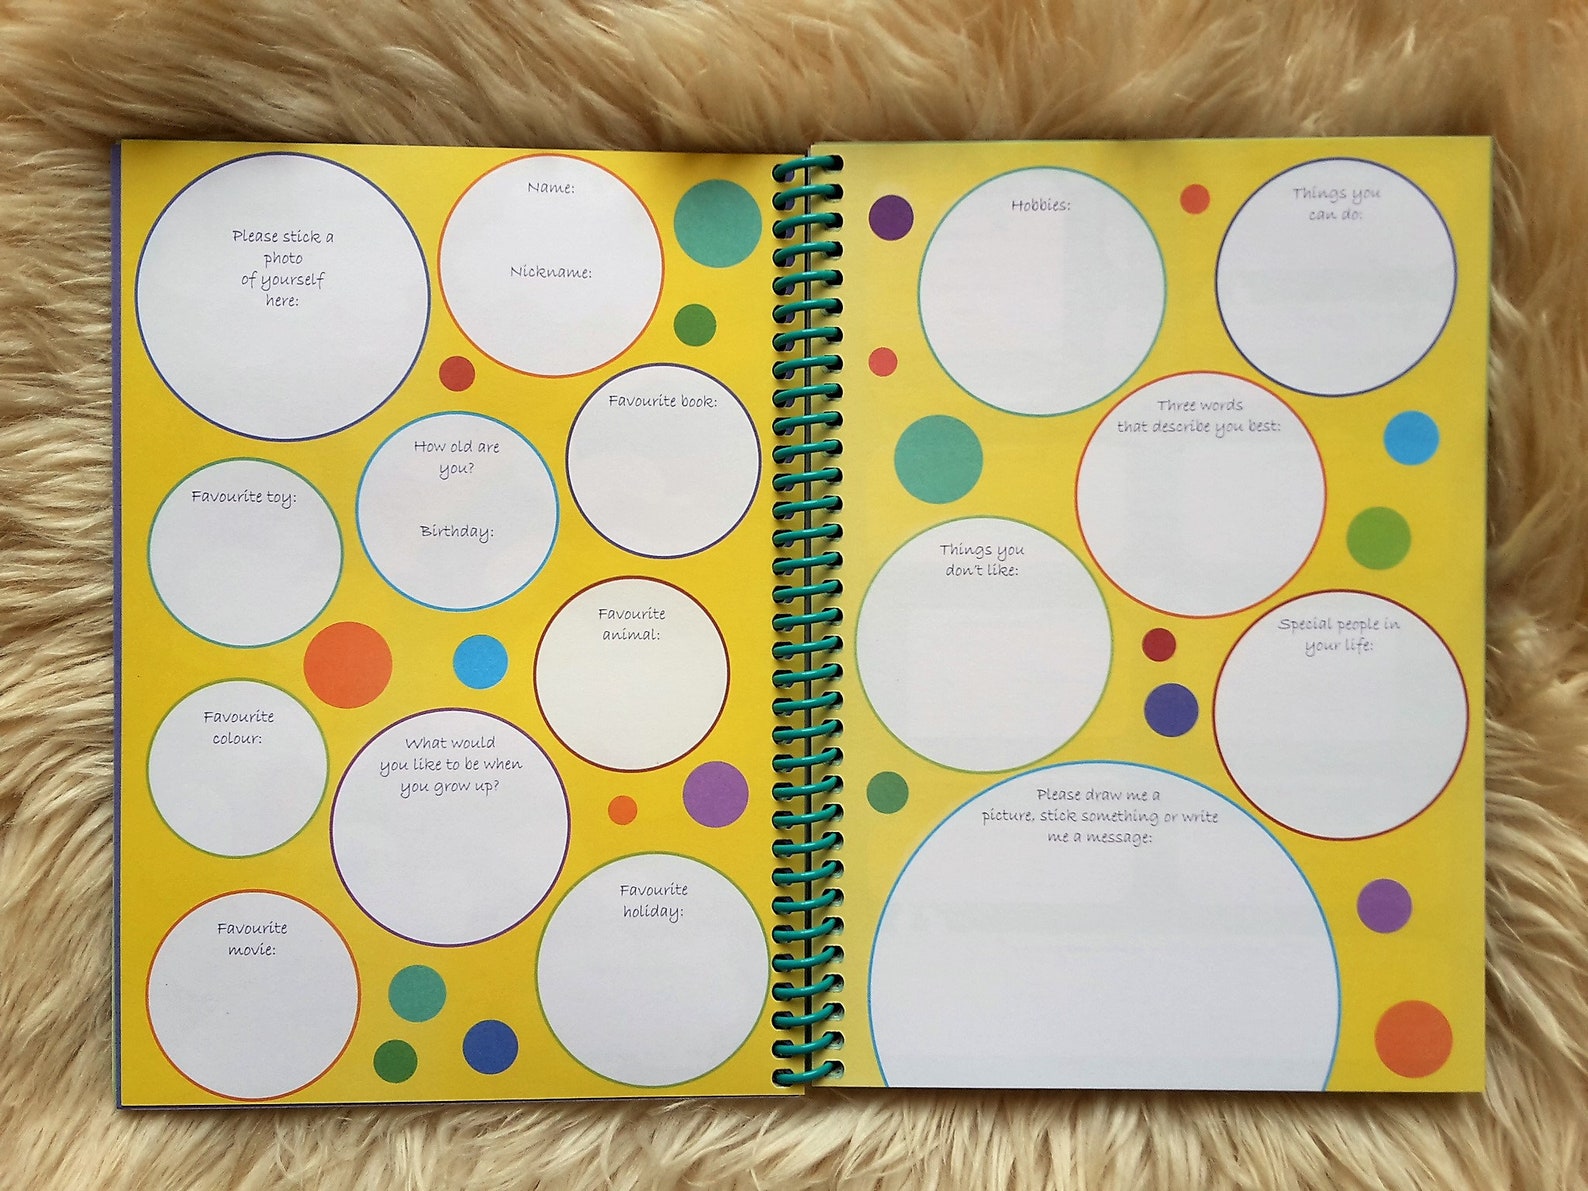 Please stick a
photo
of yourself
here:
Name:
Nickname:
Favourite book:
How old are
you?
Birthday:
Favourite toy:
Favourite
animal:
Favourite
colour:
What would
you like to be when
you grow up?
Favourite
holiday:
Favourite
movie:
Hobbies:
Things you
can do:
Three words
that describe you best:
Things you
don't like:
Special people in
your life:
Please draw me a
picture, stick something or write
me a message: